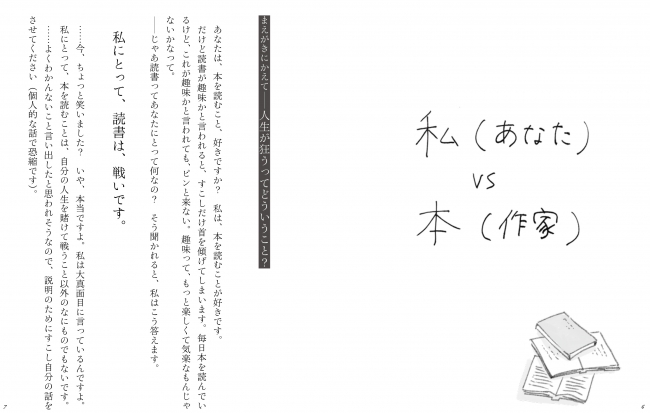 私（あなた）
vs
本（作家）
6
まえがきにかえて――人生が狂うってどういうこと？
あなたは、本を読むこと、好きですか？　私は、本を読むことが好きです。
だけど読書が趣味かと言われると、すこしだけ首を傾げてしまいます。毎日本を読んでい
るけど、これが趣味かと言われても、ピンと来ない。趣味って、もっと楽しくて気楽なもんじゃ
ないかなって。
――じゃあ読書ってあなたにとって何なの？　そう聞かれると、私はこう答えます。
私にとって、読書は、戦いです。
……今、ちょっと笑いました？　いや、本当ですよ。私は大真面目に言っているんですよ。
私にとって、本を読むことは、自分の人生を賭けて戦うこと以外のなにものでもないです。
……よくわかんないこと言い出したと思われそうなので、説明のためにすこし自分の話を
させてください（個人的な話で恐縮です）。
7